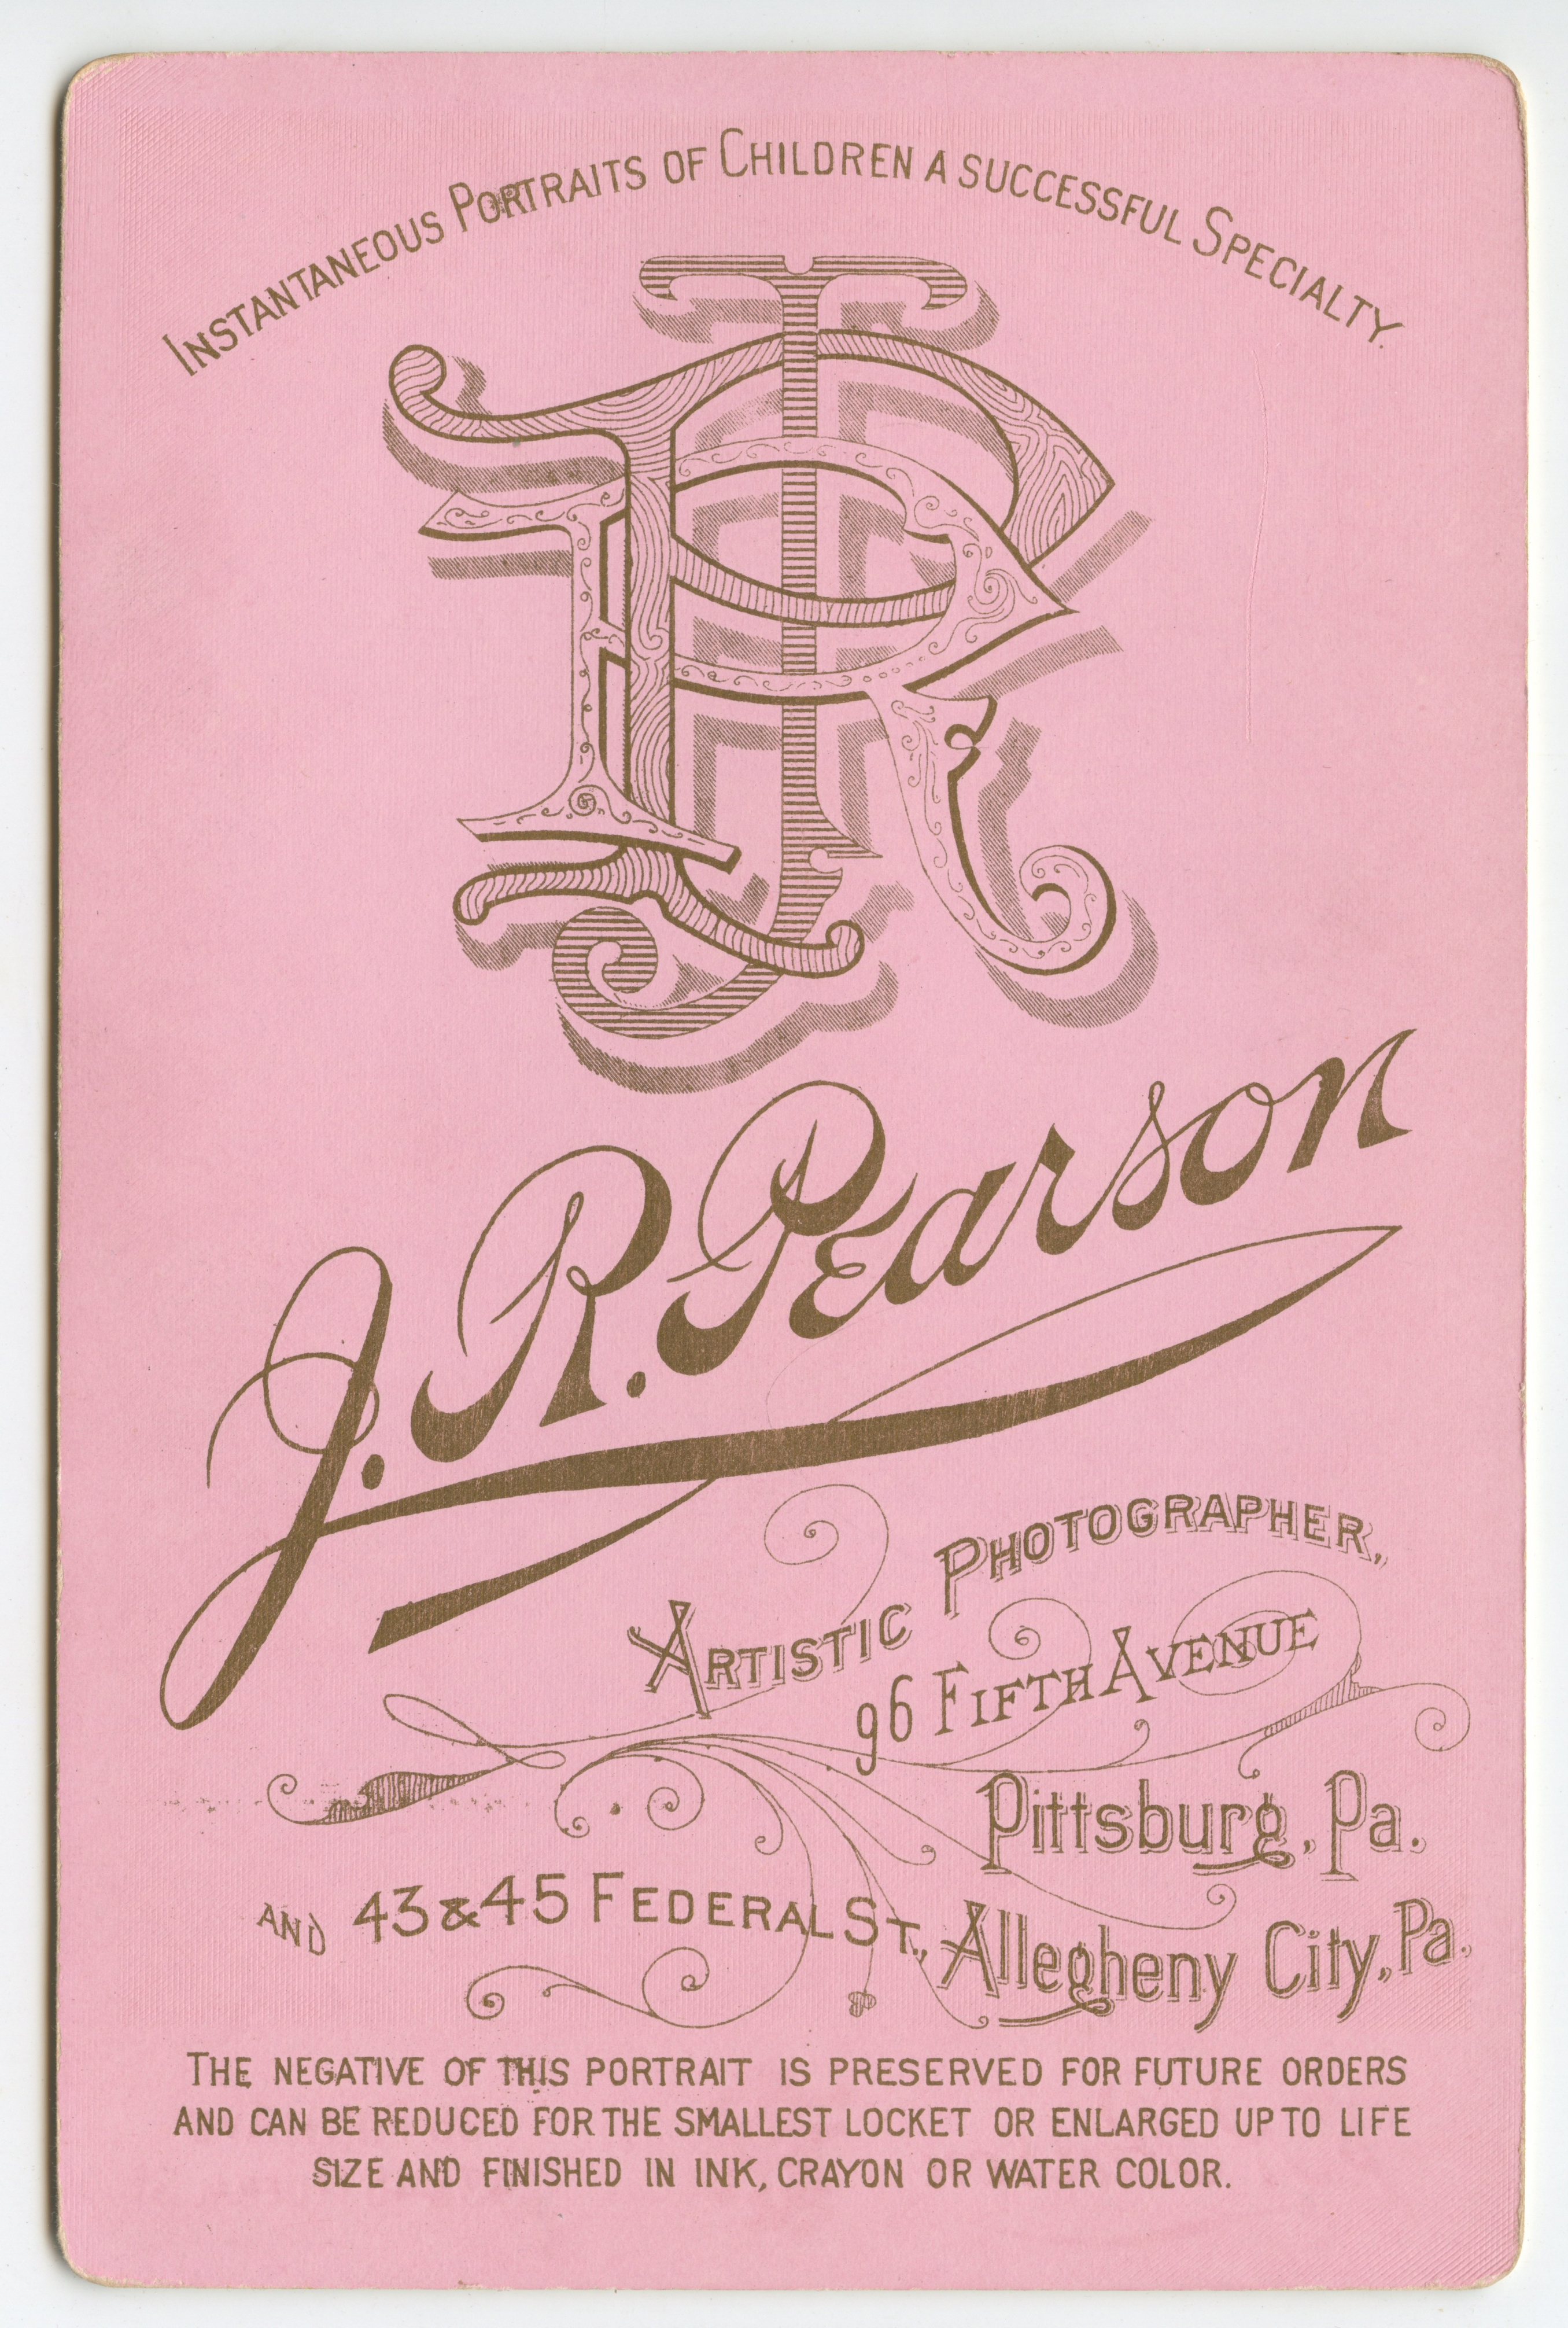 INSTANTANEOUS PORTRAITS OF CHILDREN A SUCCESSFUL SPECIALTY.
JRP
J. R. Pearson
ARTISTIC PHOTOGRAPHER,
96 FIFTH AVENUE
Pittsburg, Pa.
AND 43 & 45 FEDERAL ST., Allegheny City, Pa.
THE NEGATIVE OF THIS PORTRAIT IS PRESERVED FOR FUTURE ORDERS
AND CAN BE REDUCED FOR THE SMALLEST LOCKET OR ENLARGED UP TO LIFE
SIZE AND FINISHED IN INK, CRAYON OR WATER COLOR.